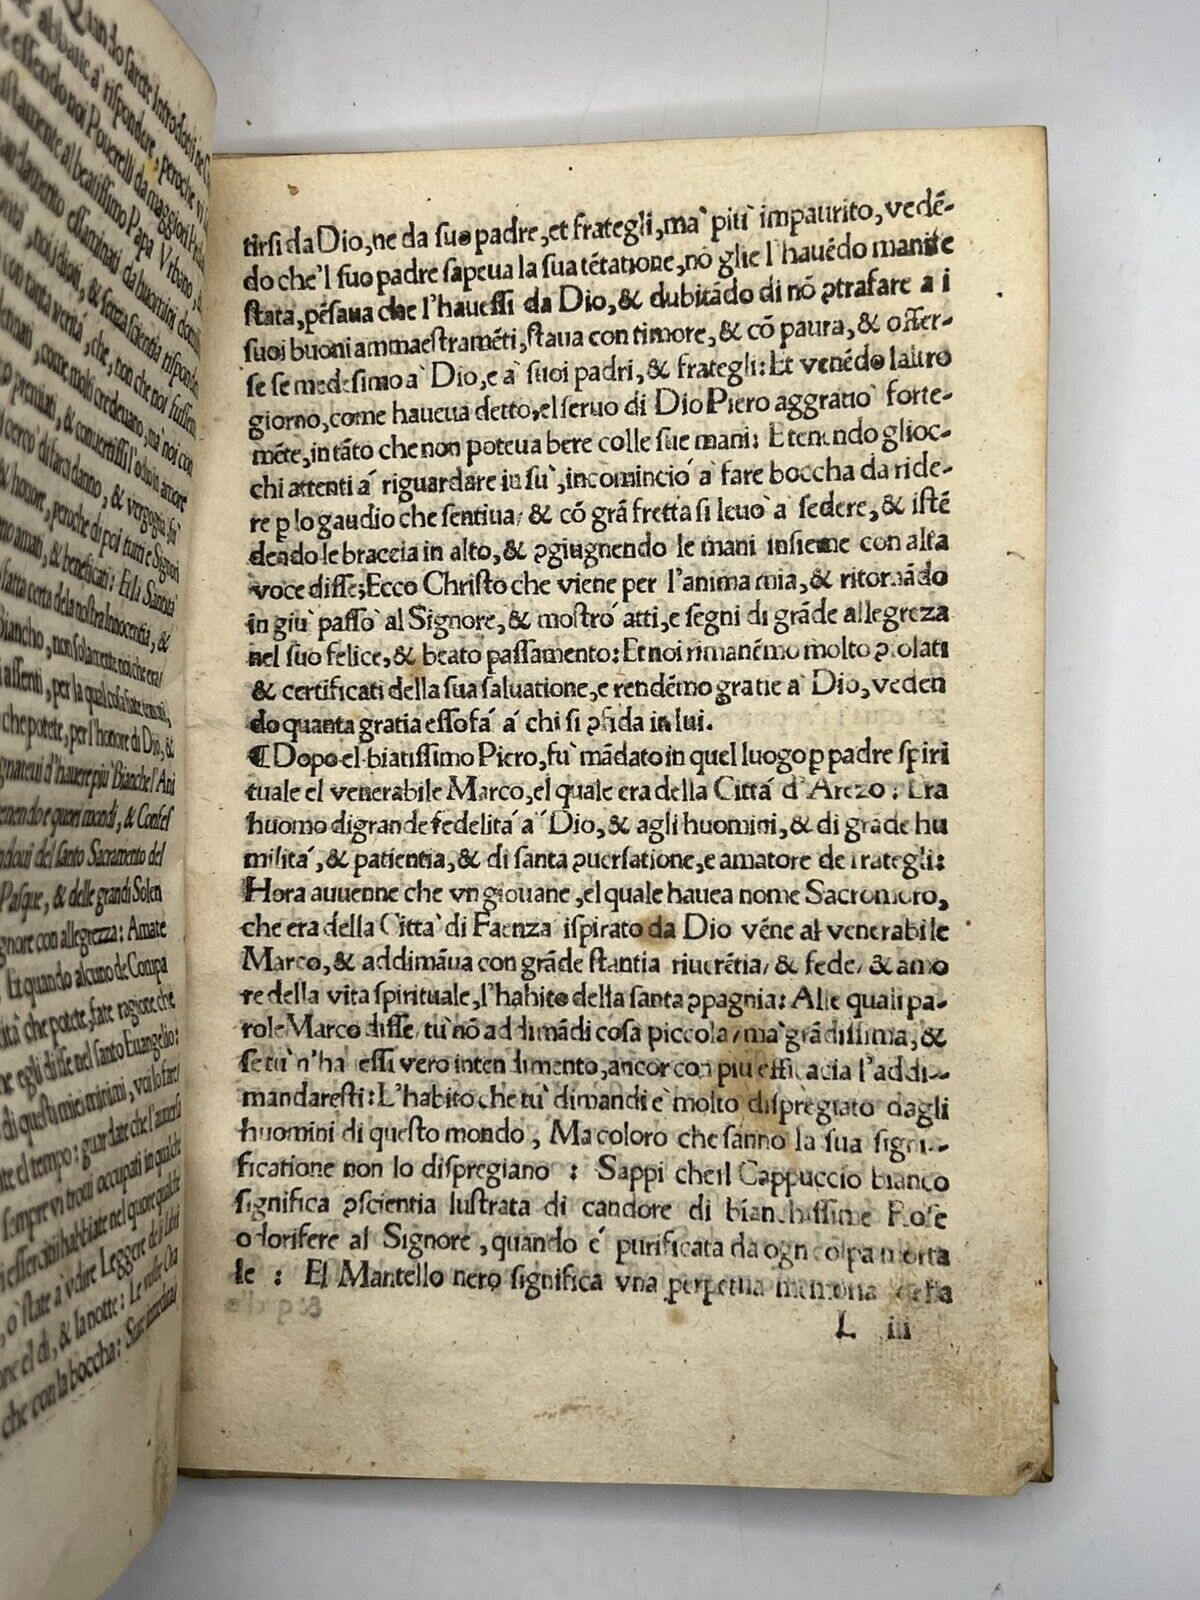 Quando sarete Introdotti
abbatte a' rispondere, peroche vi
essendo noi Pouerelli da maggiori
stamente al beatissimo Papa Vrbano,
mandamento essaminati da huomini
noi idioti, & senza scientia
con tanta verità, che, non che noi fussem
come molti credeuano, ma' noi con
premiati, & conuertissi l'odio in amore
cercò di far a danno, & vergogna fu'
& honore, peroche di poi tutti e Signori
amati, & beneficati: E la Santa'
fatta certa dela nostra Innocentia, &
Biancho, non solamente noi che era/
assenti, per la qual cosa fate
che potete, per l'honore di Dio, &
d'hauere più Bianche l'Ani
e quori mondi, & Confes
del santo Sacramento del
Pasque, & delle grandi Solen
con allegrezza: Amate
Et quando alcuno de Compa
che potete, fate ragione che
egli disse nel santo Euangelio:
di questi miei minimi, voi lo fate/
el tempo: guardate che l'auuersa
sempre vi troui occupati in qualche
habbiate nel quore qualche
ò state a' vdire Leggere
el di, & la notte: Le
che con la boccha: Siate
tirsi da Dio, ne da suo padre, et frategli, ma' piu' impaurito, vedē-
do che'l suo padre sapeua la sua tētatione, nō glie l'hauēdo manife
stata, pēsaua che l'hauessi da Dio, & dubitādo di nō ꝯtrafare a i
suoi buoni ammaestramēti, staua con timore, & cō paura, & offer-
se se medesimo a' Dio, e a' suoi padri, & frategli: Et venēdo laltro
giorno, come haueua detto, el seruo di Dio Piero aggrauò forte-
mēte, in tāto che non poteua bere colle sue mani: E tenendo gliocc-
chi attenti á riguardare in su', incominciò a' fare boccha da ride-
re ꝑ lo gaudio che sentiua/ & cō grā fretta si leuò a' sedere, & istē
dendo le braccia in alto, & ꝯgiugnendo le mani insieme con alta
voce disse; Ecco Christo che viene per l'anima mia, & ritornādo
in giu' passò al Signore, & mostrò atti, e segni di grāde allegreza
nel suo felice, & beato passamento: Et noi rimanēmo molto ꝯsolati
& certificati della sua saluatione, e rendēmo gratie a' Dio, veden
do quanta gratia esso fá á chi si ꝯfida in lui.
¶ Dopo el biatissimo Piero, fu' mādato in quel luogo ꝑ padre spiri
tuale el venerabile Marco, el quale era della Cittá d'Arezo: Era
huomo di grande fedelitá a' Dio, & agli huomini, & di grāde hu
milita', & patientia, & di santa ꝯuersatione, e amatore de frategli:
Hora auuenne che vn giouane, el quale hauea nome Sacromoro,
che era della Città di Faenza ispirato da Dio vēne al venerabile
Marco, & addimāua con grāde stantia riuerētia/ & fede, & amo
re della vita spirituale, l'habito della santa ꝯpagnia: Alle quali pa
role Marco disse/ tu' nō addimādi cosa piccola/ ma' grādissima, &
se tu' n'hauessi vero intendimento, ancor con piu efficacia l'addi-
mandaresti: L'habito che tu' dimandi è molto dispregiato dagli
huomini di questo mondo, Ma coloro che sanno la sua signi-
ficatione non lo dispregiano : Sappi cheil Cappuccio bianco
significa ꝯscientia lustrata di candore di bianchissime Rose
odorifere al Signore, quando é purificata da ogni colpa morta
le : El Mantello nero significa vna perpetua memoria della
L iii